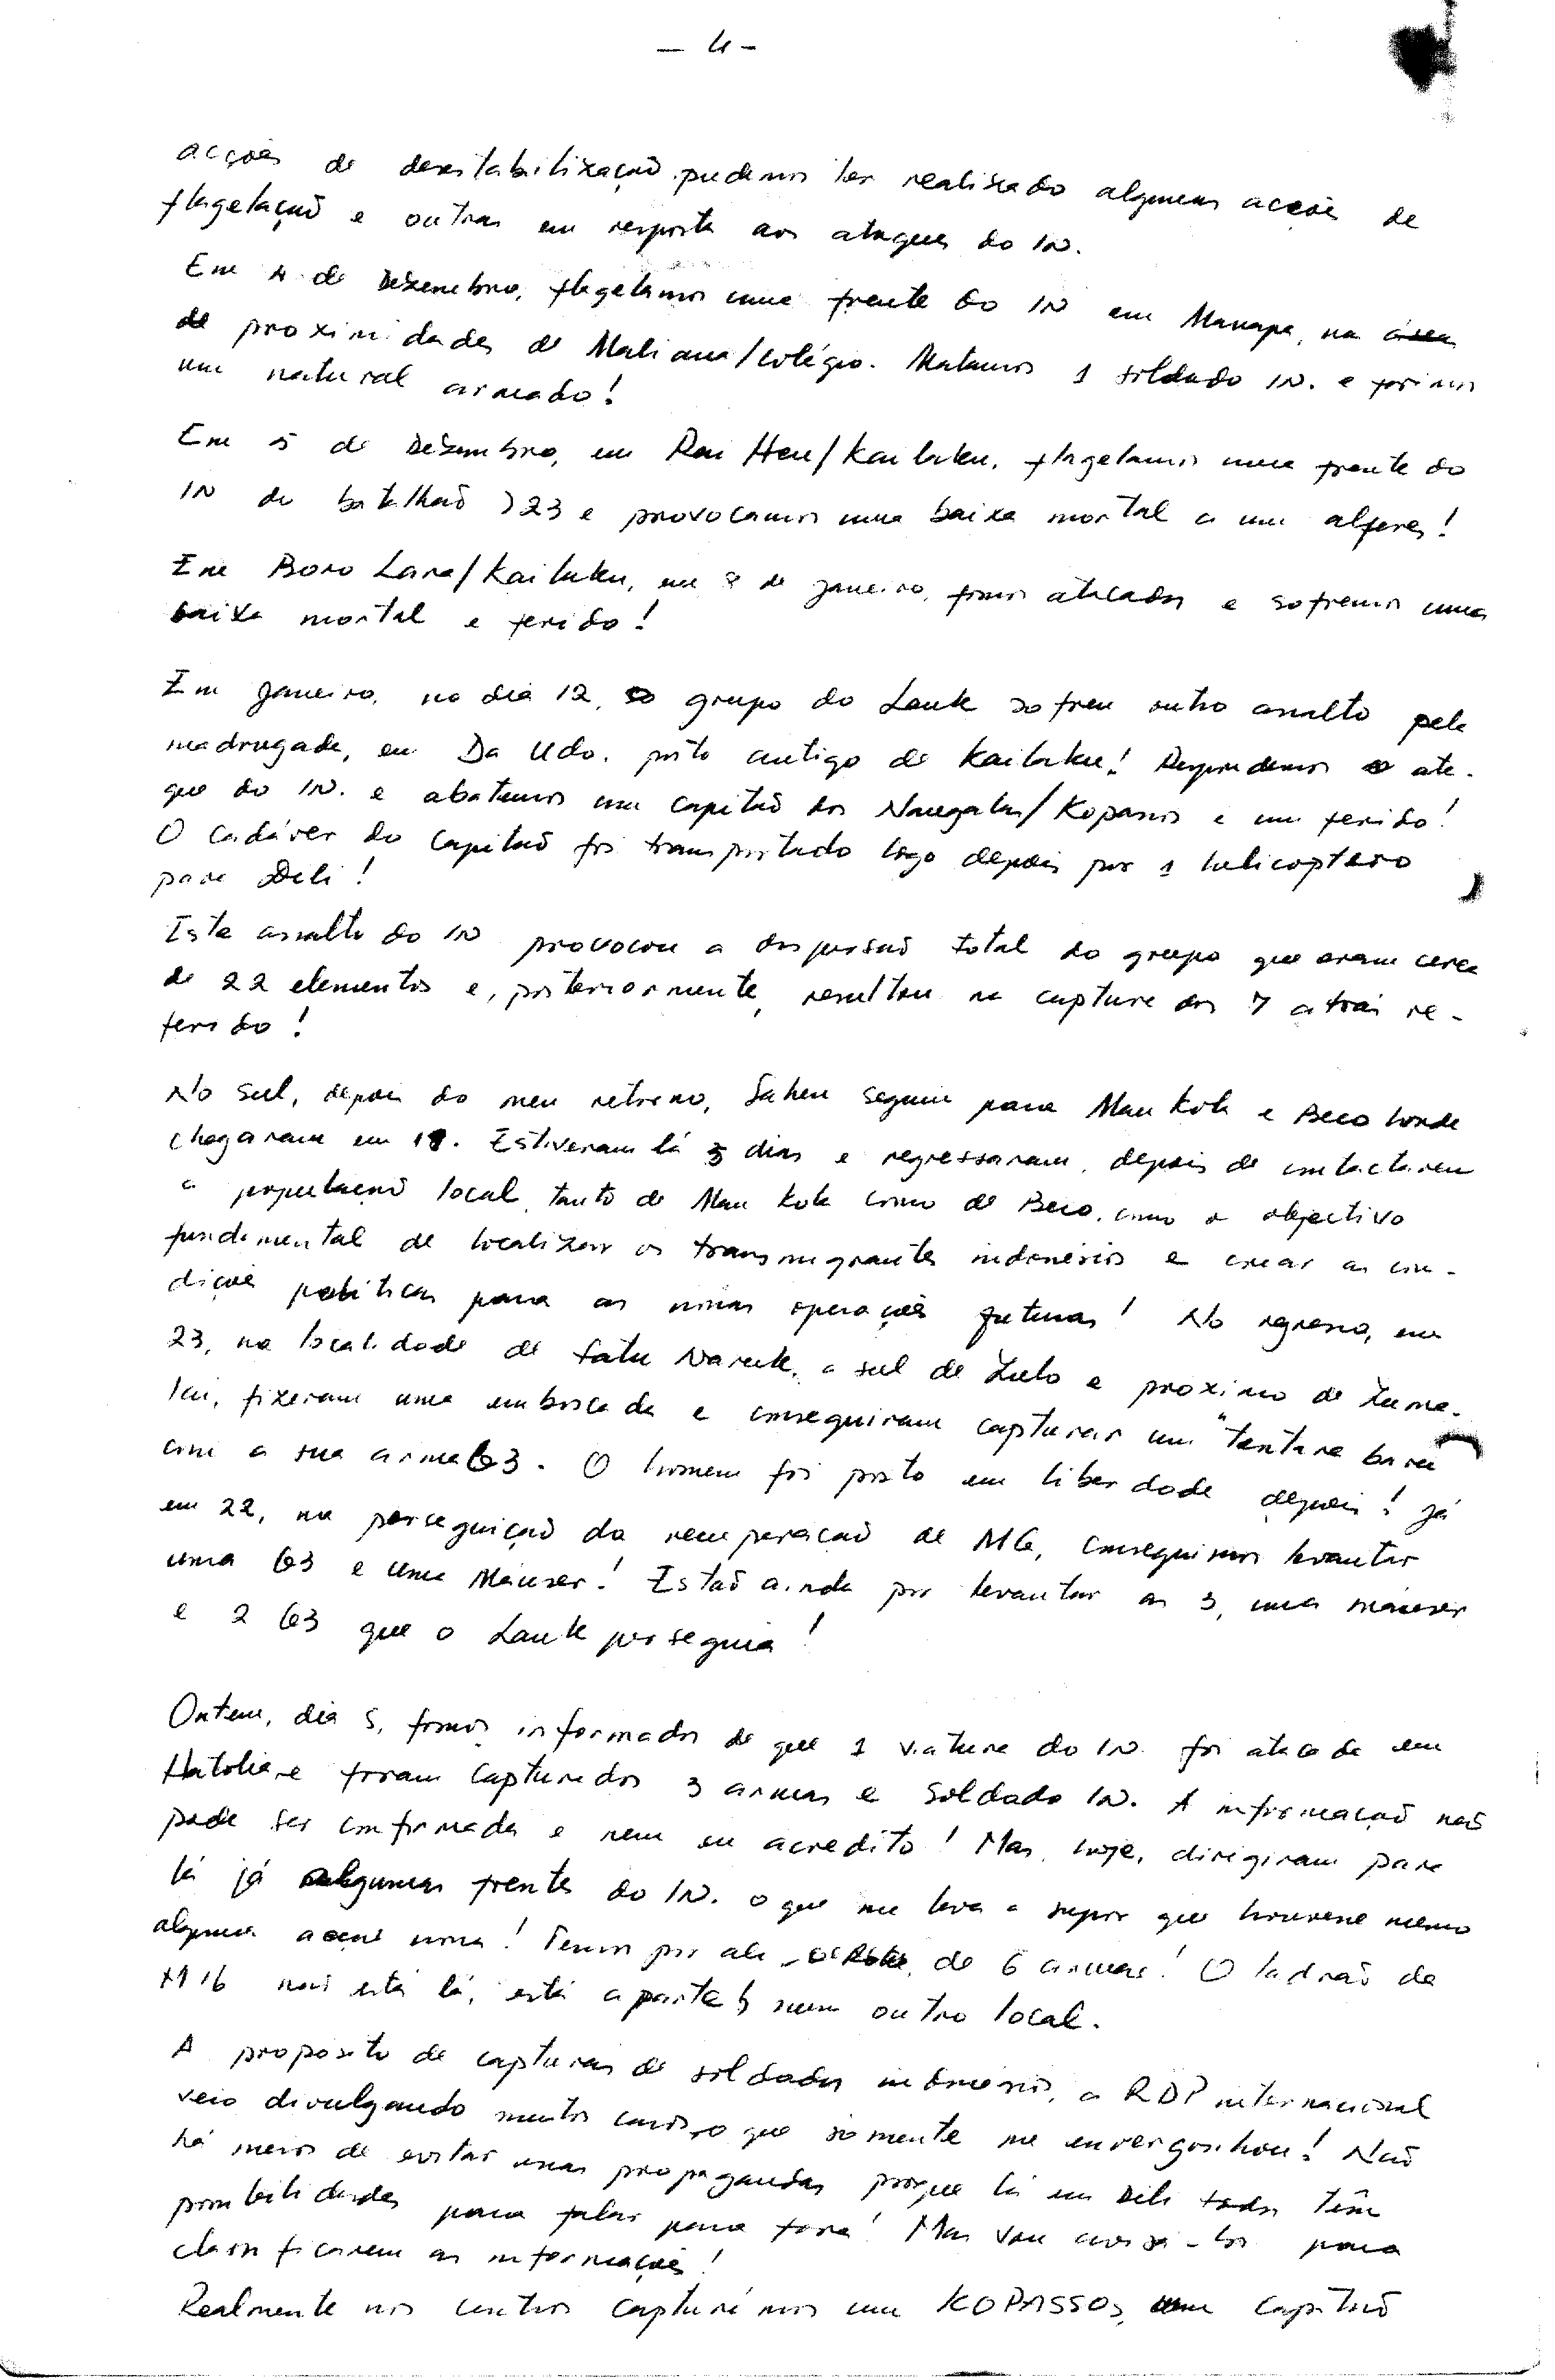 - 4 -
acções de desestabilização pudemos ter realizado algumas acções de
flagelação e outras em resposta aos ataques do IN.
Em 4 de Dezembro, flagelamos uma frente do IN em Manapa, na área
de proximidades de Maliana/colégio. Matamos 1 soldado IN. e ferimos
um natural armado!
Em 5 de Dezembro, em Rai Heu/Kailaku, flagelamos uma frente do
IN do batalhão 723 e provocamos uma baixa mortal a um alferes!
Em Boro Lara/Kailaku, em 8 de Janeiro, fomos atacados e sofremos uma
baixa mortal e ferido!
Em Janeiro, no dia 12, o grupo do Lauk sofreu outro assalto pela
madrugada, em Da Udo, posto antigo de Kailaku! Respondemos o ata-
que do IN. e abatemos um capitão dos Nanggalas/Kopassos e um ferido!
O cadáver do capitão foi transportado logo depois por 1 helicoptero
para Dili!
Este assalto do IN provocou a dispersão total do grupo que eram cerca
de 22 elementos e, posteriormente, resultou na captura dos 7 atrás re-
ferido!
No sul, depois do meu retorno, Saheu seguiu para Mau Kola e Beco onde
chegaram em 18. Estiveram lá 3 dias e regressaram, depois de contactarem
a população local, tanto de Mau Kola como de Beco, como o objectivo
fundamental de localizar os transmigrantes indonésios e criar as con-
dições políticas para as nossas operações futuras! No regresso, em
23, na localidade de Fatu Naruk, a sul de Lulo e proximo de Luma-
lai, fizeram uma emboscada e conseguiram capturar um "tentara baru"
com a sua arma G3. O homem foi posto em liberdade depois! Já
em 22, na perseguição da recuperação de MG, conseguimos levantar
uma G3 e uma Mauser! Estão ainda por levantar as 3, uma mauser
e 2 G3 que o Lauk perseguia!
Ontem, dia 5, fomos informados de que 1 viatura do IN. foi atacada em
Hatolia e foram capturados 3 armas e soldado IN. A informação não
pode ser confirmada e nem eu acredito! Mas, hoje, dirigiram para
lá já algumas frentes do IN. o que me leva a supor que houvesse mesmo
alguma acção nossa! Temos por ali de 6 armas! O ladrão da
M16 não está lá, está aparte num outro local.
A proposito de capturas de soldados indonésios, a RDP internacional
veio divulgando muitos casos, o que somente me envergonhou! Não
há meios de evitar essas propagandas porque lá em Dili todos têm
possibilidades para falar para fora! Mas vou avisá-los para
classificarem as informações!
Realmente nós contros capturámos um KOPASSOS, um capitão